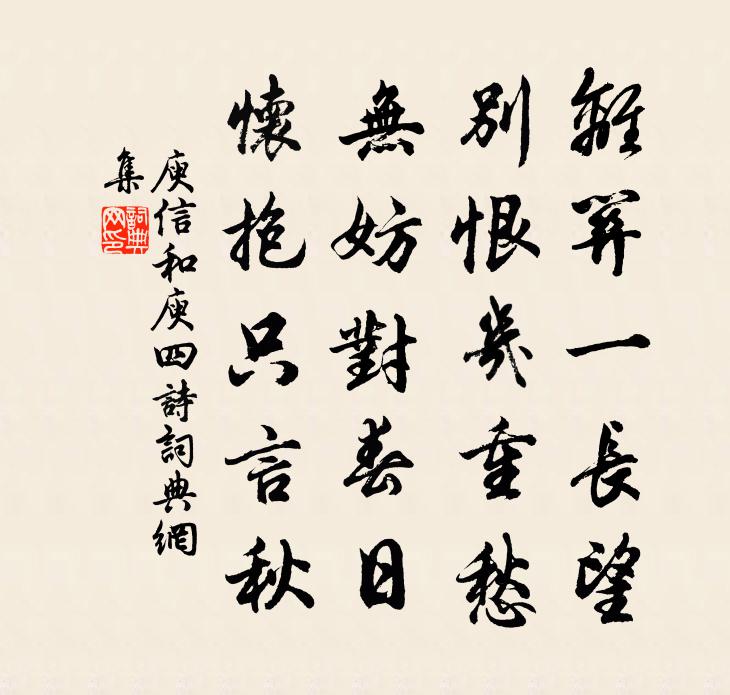 離關一長望
別恨幾重愁
無妨對春日
懷抱只言秋
庾信和庾四詩詞典網
集
詞典
网印